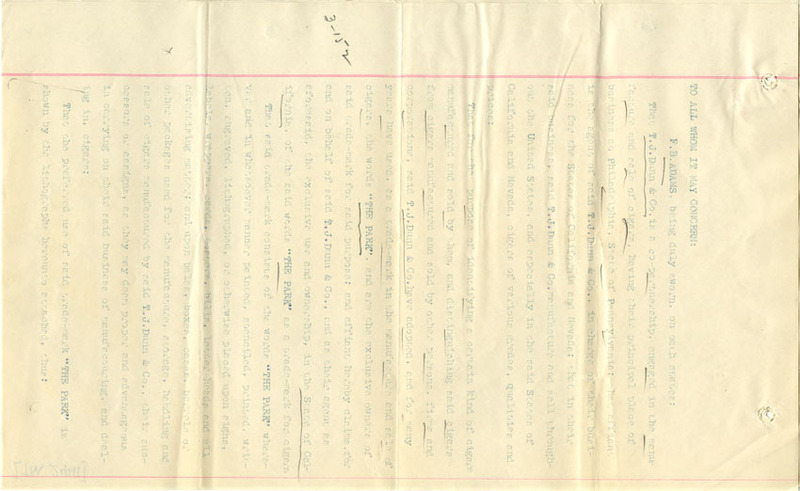 3-1572
TO ALL WHOM IT MAY CONCERN:
F.B. ADAMS, being duly sworn, on oath answers:
That T.J. Dunn & Co. is a co-partnership, engaged in the manu-
facture and sale of cigars, having their principal place of
business at Philadelphia, State of Pennsylvania; that affiant
is the agent of said T.J. Dunn & Co., in charge of their busi-
ness for the States of California and Nevada; that in their
said business, said T.J. Dunn & Co. manufacture and sell through-
out the United States, and especially in the said States of
California and Nevada, cigars of various grades, qualities and
prices:
That for the purpose of identifying a certain kind of cigars
manufactured and sold by them, and distinguishing said cigars
from cigars manufactured and sold by other persons, firms and
corporations, said T.J. Dunn & Co. have adopted, and for many
years have used, as a trade-mark in the manufacture and sale of
cigars, the words "THE PARK", and are the exclusive owners of
said trade-mark for said purpose; and affiant hereby claims for
and on behalf of said T.J. Dunn & Co., and as their agent as
aforesaid, the exclusive use and ownership, in the State of Cal-
ifornia, of the said words "THE PARK" as a trade-mark for cigars.
That said trade-mark consists of the words "THE PARK" where-
ver and in whatsoever manner printed, stenciled, painted, writ-
ten, engraved, lithographed, or otherwise placed upon signs,
labels, wrappers, cards, banners, bills, letter heads, and all
advertising matter; and upon bales, boxes, cases, barrels or
other packages used for the manufacture, storage, handling and
sale of cigars manufactured by said T.J. Dunn & Co., their suc-
cessors or assigns, as they may deem proper and advantageous
in carrying on their said business of manufacturing, and deal-
ing in, cigars:
That the preferred use of said trade-mark "THE PARK" is
shown by the lithographs hereunto attached, thus: